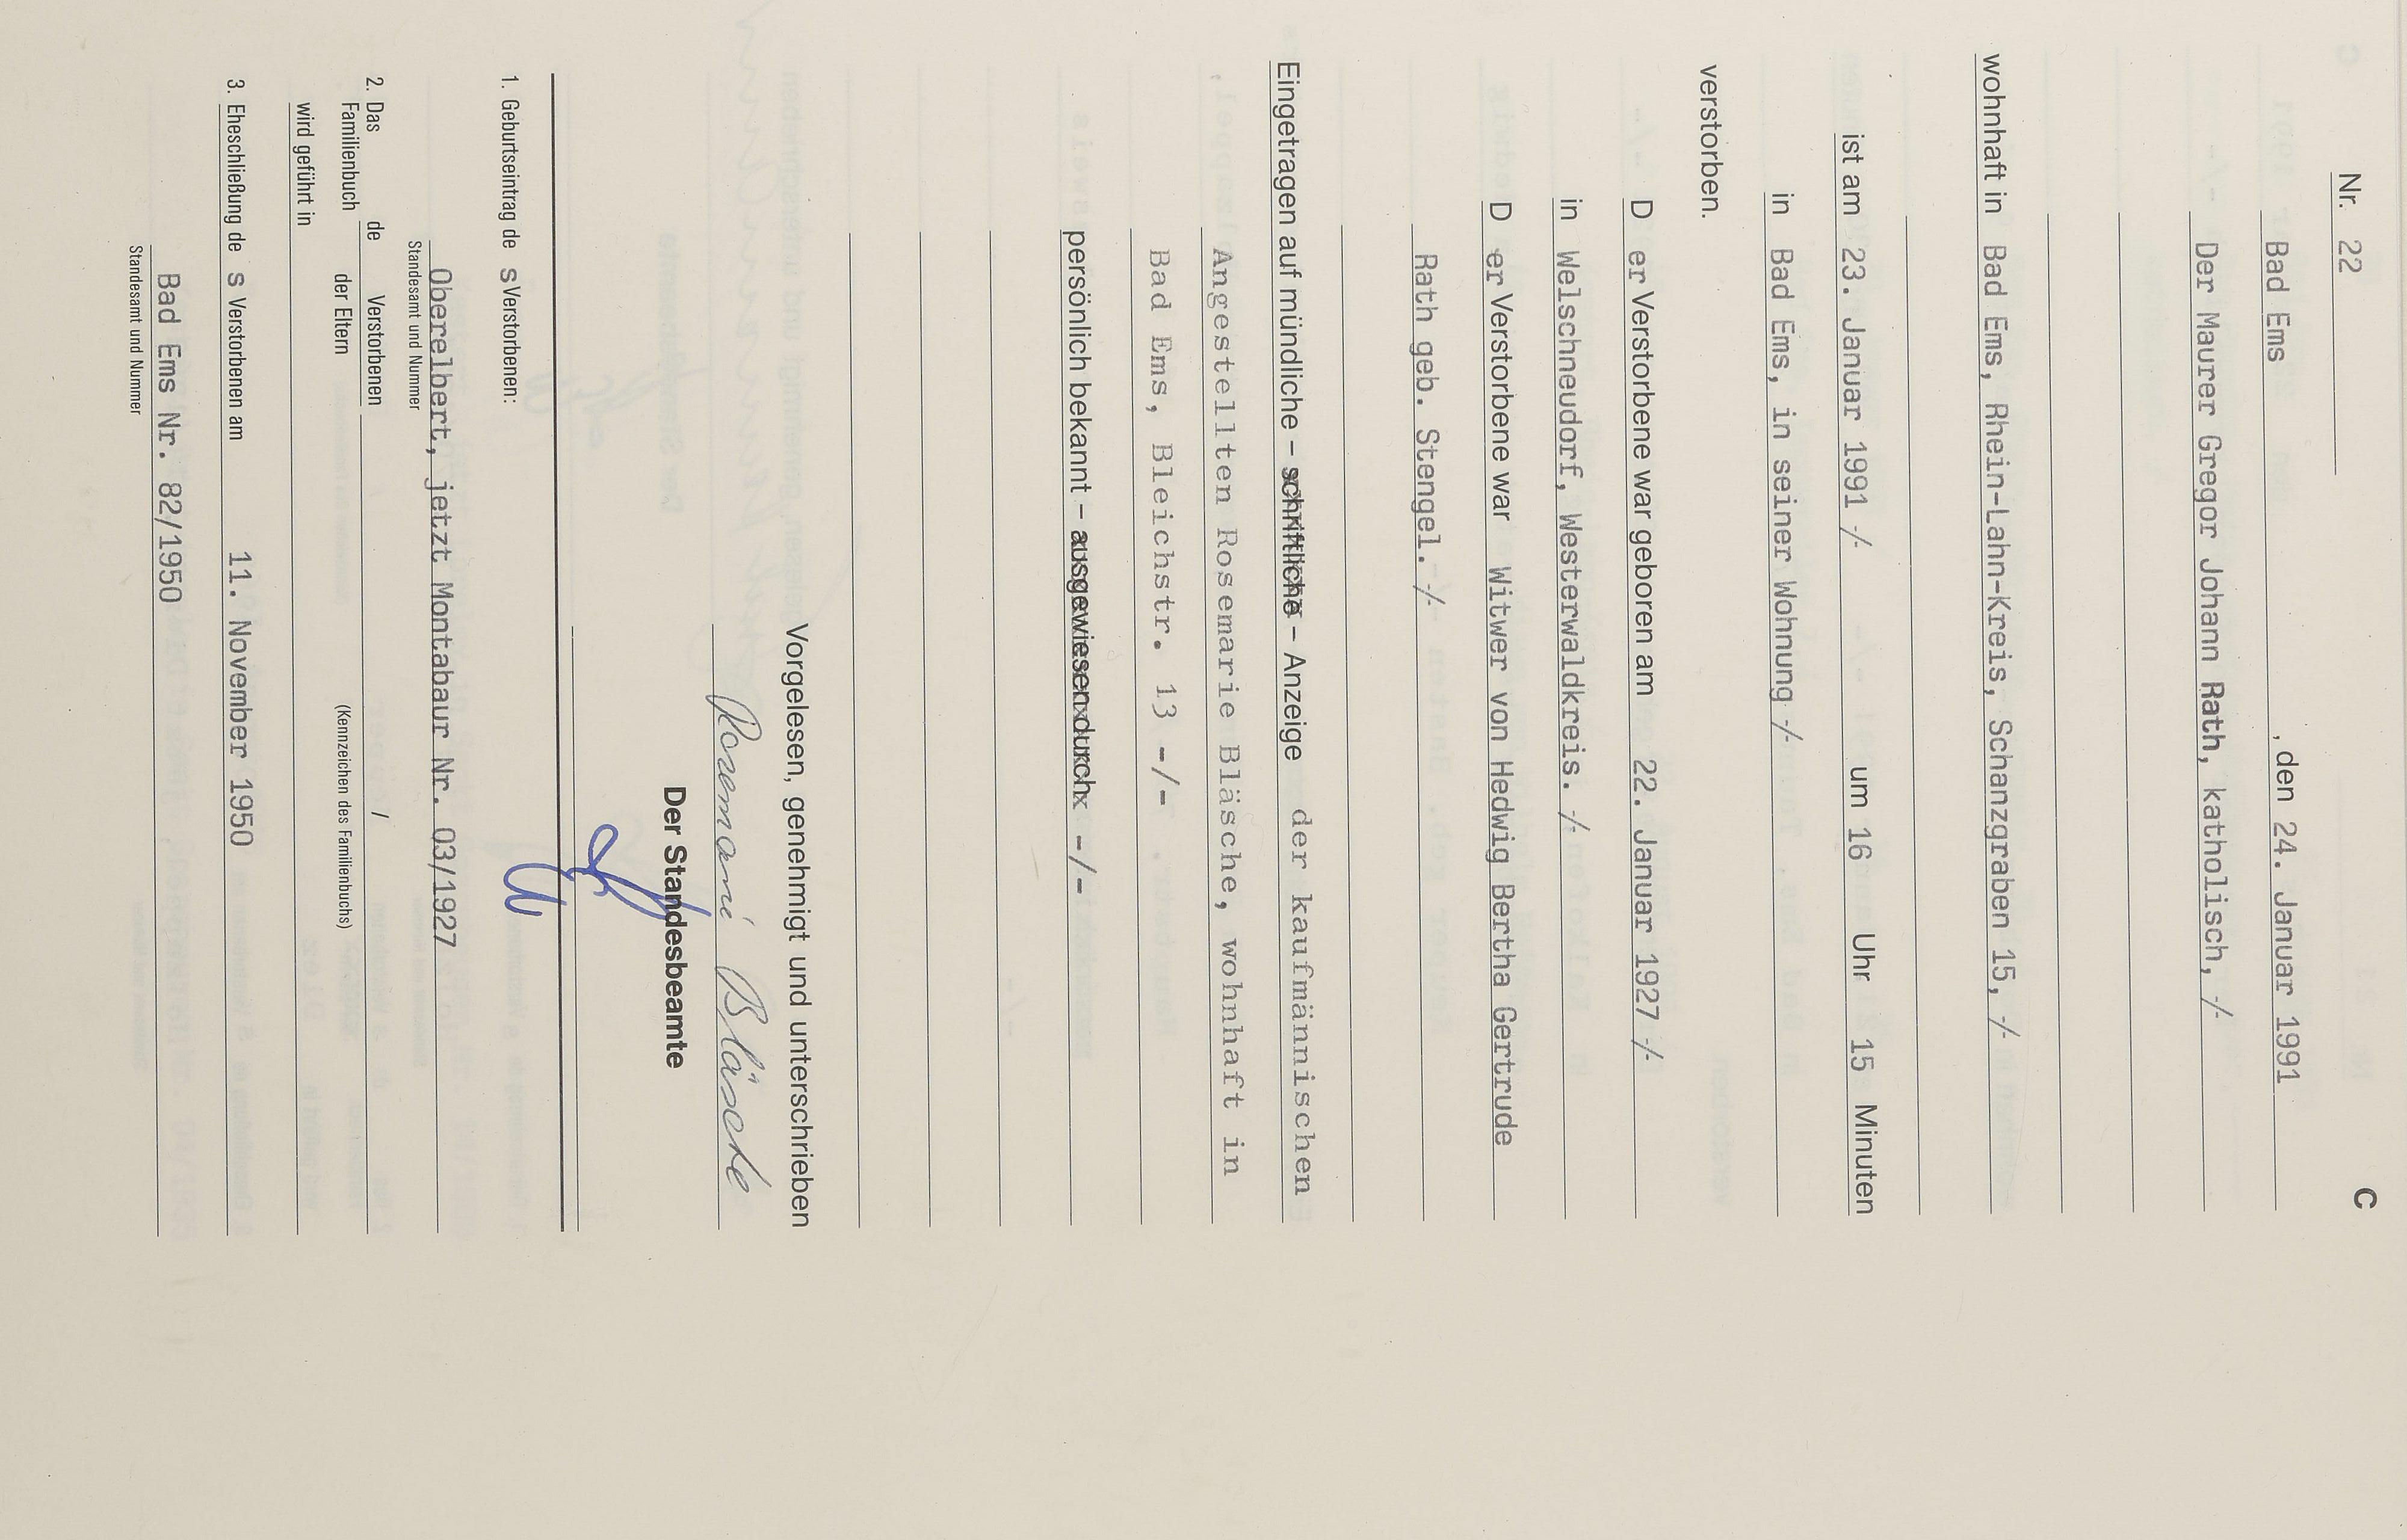 C
Nr. 22
Bad Ems , den 24. Januar 1991
Der Maurer Gregor Johann Rath, katholisch, -/-
wohnhaft in Bad Ems, Rhein-Lahn-Kreis, Schanzgraben 15, -/-
ist am 23. Januar 1991 -/- um 16 Uhr 15 Minuten
in Bad Ems, in seiner Wohnung -/-
verstorben.
D er Verstorbene war geboren am 22. Januar 1927 -/-
in Welschneudorf, Westerwaldkreis. -/-
D er Verstorbene war Witwer von Hedwig Bertha Gertrude
Rath geb. Stengel. -/-
Eingetragen auf mündliche – schriftliche – Anzeige der kaufmännischen
Angestellten Rosemarie Bläsche, wohnhaft in
Bad Ems, Bleichstr. 13 -/-
persönlich bekannt – ausgewiesen durch -/-
Vorgelesen, genehmigt und unterschrieben
Rosemarie Bläsche
Der Standesbeamte
1. Geburtseintrag de s Verstorbenen:
Oberelbert, jetzt Montabaur Nr. 03/1927
Standesamt und Nummer
2. Das de Verstorbenen /
Familienbuch der Eltern (Kennzeichen des Familienbuchs)
wird geführt in
3. Eheschließung de s Verstorbenen am 11. November 1950
Bad Ems Nr. 82/1950
Standesamt und Nummer